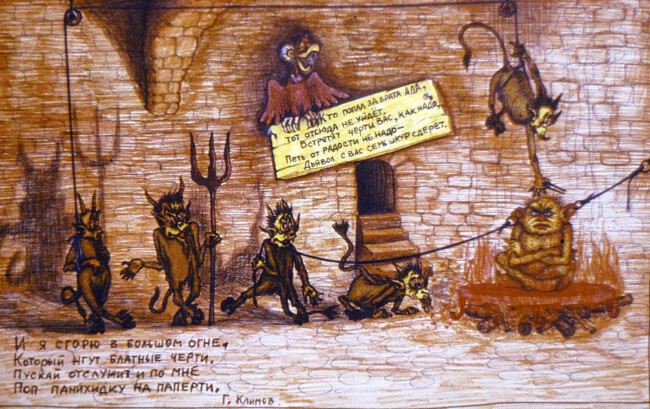 Кто попал за врата ада,
тот отсюда не уйдет.
Встретят черти вас, как надо,
Петь от радости не надо—
Дьявол с вас семь шкур сдерет.
И я сгорю в большом огне,
Который жгут блатные черти.
Пускай отслужит и по мне
Поп панихидку на паперти.
Г. Климов